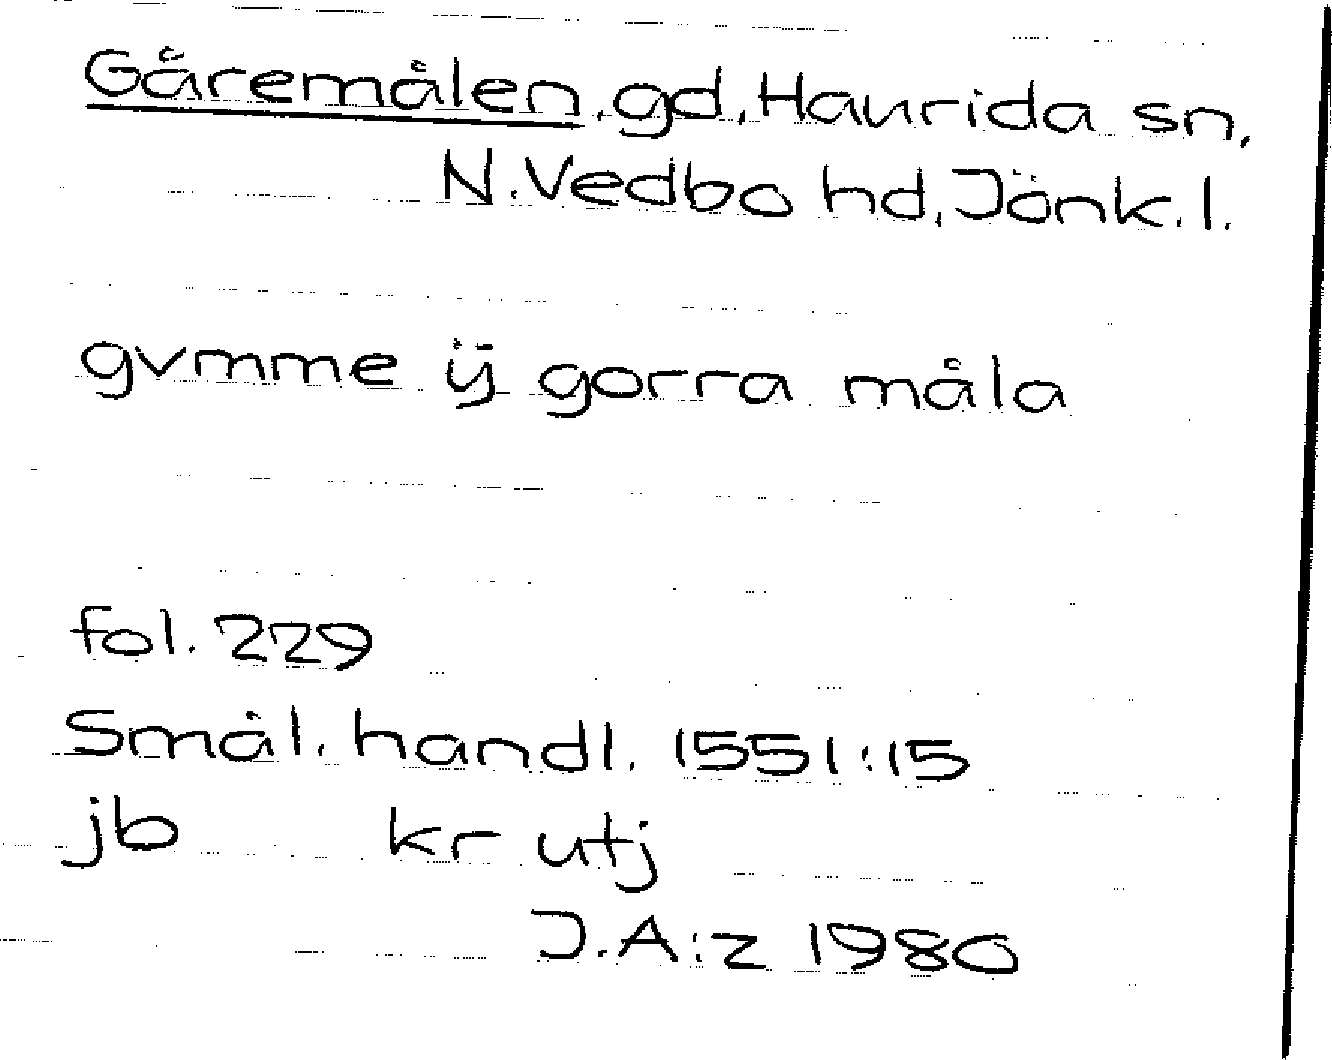 Gåremålen, gd, Haurida sn,
N. Vedbo hd, Jönk. l.
gvmme ÿ gorra måla
fol. 229
Smål. handl. 1551:15
jb kr utj
J.A:z 1980